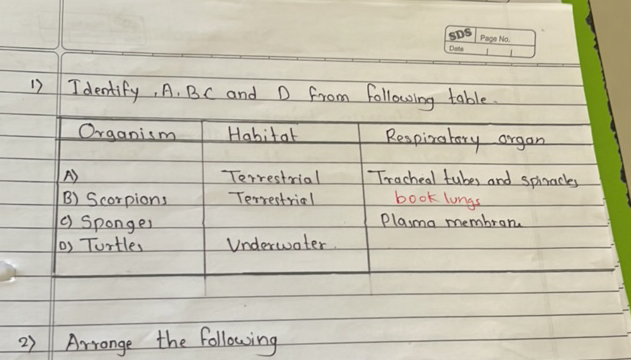 SDS Page No.
Date
1) Identify A. B C and D from following table.
Organism Habitat Respiratory organ
A) Terrestrial Tracheal tubes and spiracles
B) Scorpions Terrestrial book lungs
C) Sponges Plasma membrane
D) Turtles Underwater.
2) Arrange the following